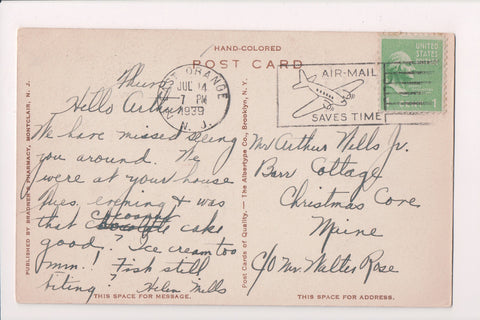 HAND-COLORED
POST CARD
PUBLISHED BY BRADNER'S PHARMACY, MONTCLAIR, N. J.
Post Cards of Quality. — The Albertype Co., Brooklyn, N. Y.
ORANGE
JUL 14
7 PM
1939
N. J.
AIR-MAIL
SAVES TIME
UNITED
STATES
1
Thurs.
Hello Arthur
We have missed seeing
you around. We
were at your house
Tues. evening & was
that Cocoanut
cake
good? Ice cream too
mm! Fish still
biting? Helen Mills
Mr Arthur Wells Jr.
Barr Cottage
Christmas Cove
Maine
C/O Mr. Walter Rose
THIS SPACE FOR MESSAGE.
THIS SPACE FOR ADDRESS.